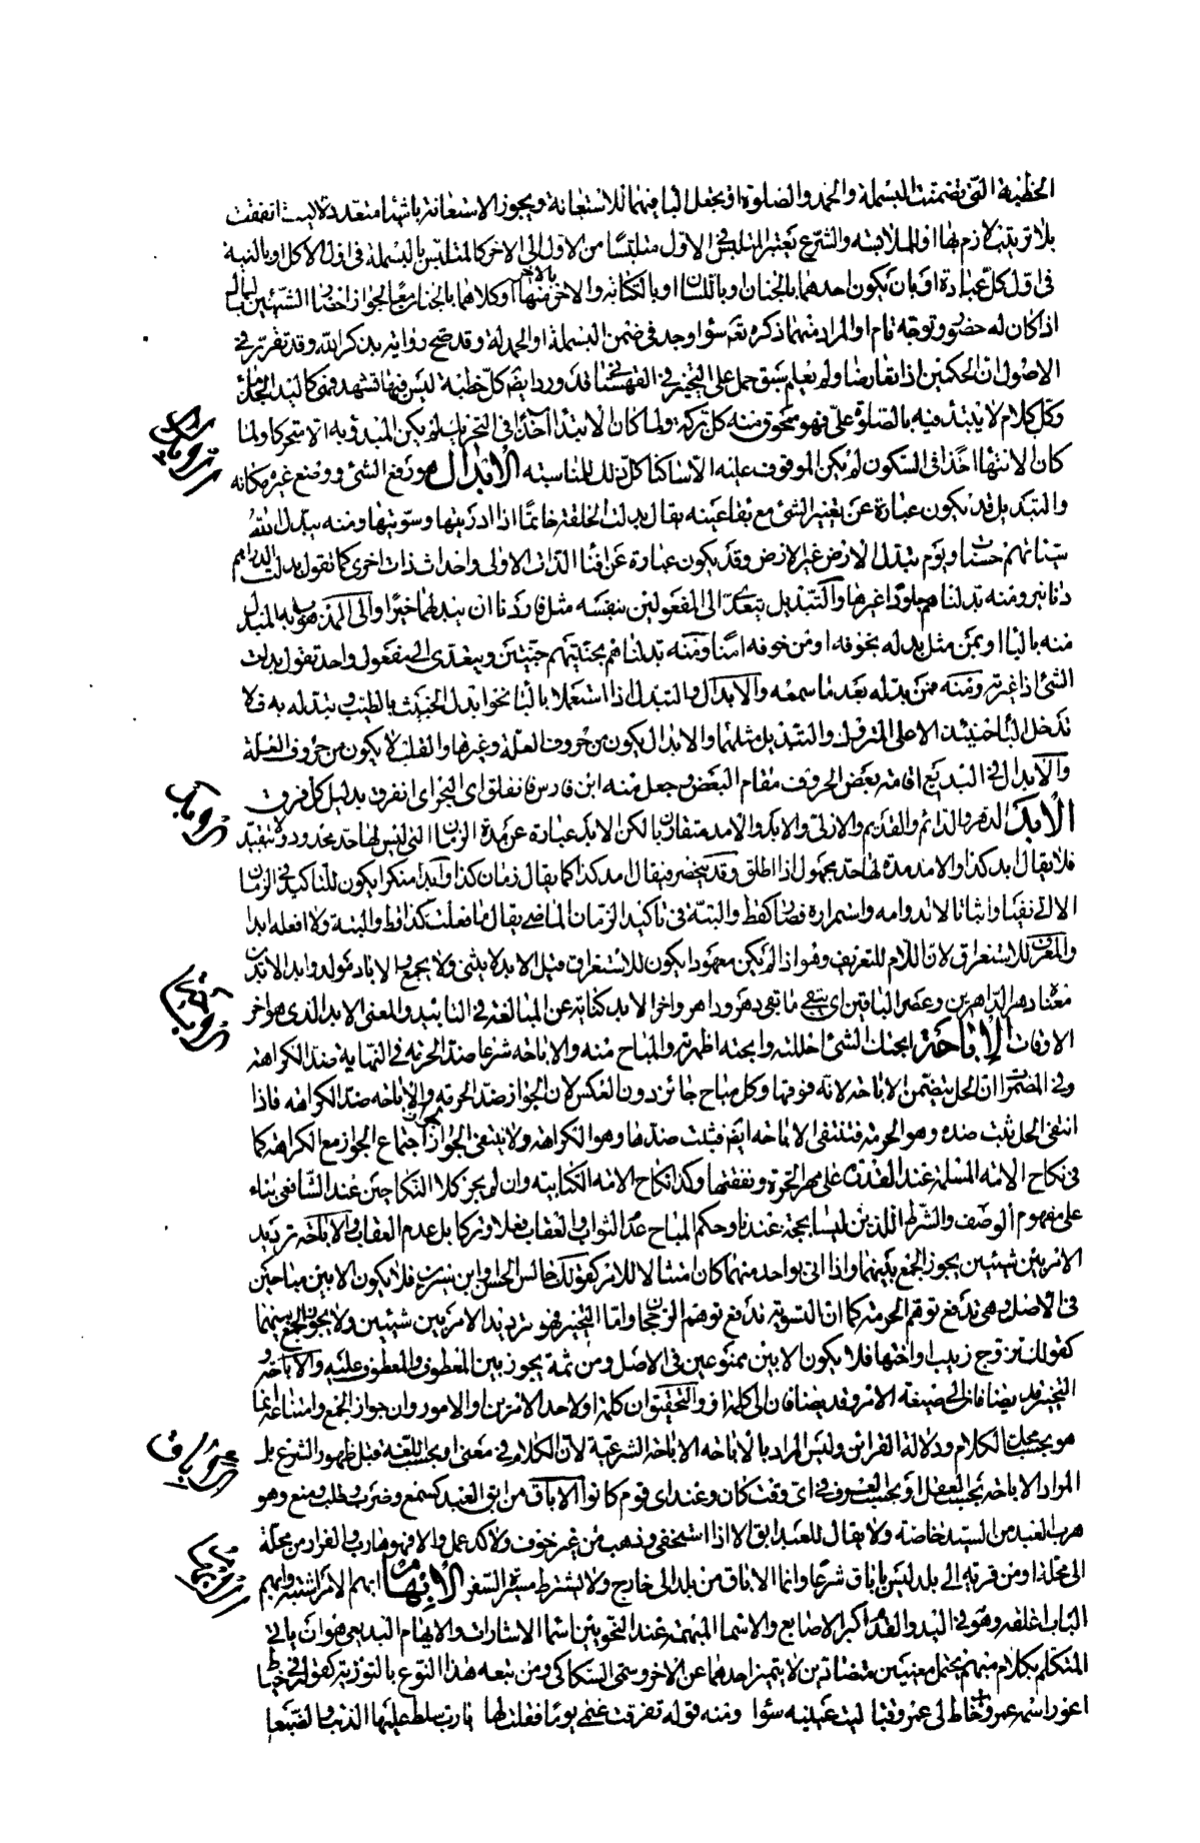 الخطبة التى تضمنت البسملة والحمد والصلوة او بجعل البا فيهما للاستعانة ويجوز الاستعانة باشيا متعددة اليت اتفقت
بلا ترتيب لازم بها او للملابسة والشرع يعتبر المتلبس الاول متلبسا من الاول الى الاخر كالمتلبس بالبسملة فى اول الاكل او بالنية
فى اول كل عبادة او بان يكون احدهما بالجنان او باللسان او بالكتابة والاخر منهما بالاخر او كلاهما بالجنان معا لجواز اخضار الشيئين بالبال
اذا كان له حضور وتوجه تام او المراد منهما ذكره تع سوا وجد فى ضمن البسملة او الحمدلة وقد صح رواية بذكر الله وقد تقرر فى
الاصول ان الحكمين اذا تعارضا ولم يعلم سبق حمل على التخيير فى القهستانى قد ورد ايضا كل خطبة ليس فيها تشهد فهى كاليد الجذماء
وكل كلام لا يبتدأ فيه بالصلوة على فهو ممحوق منه كل بركة ولما كان الابتدا آخذا فى التحريك لم يكن المبدؤ به الا متحركا ولما
كان الانتها آخذا فى السكون لم يكن الموقوف عليه الا ساكنا كل ذلك للمناسبة الابدال هو رفع الشئ ووضع غيره مكانه
والتبديل قد يكون عبارة عن تغيير الشئ مع بقا عينه يقال بدلت الحلقة خاتما اذا ادرتها وسويتها ومنه يبدل الله
سيئاتهم حسنات ويوم تبدل الارض غير الارض وقد يكون عبارة عن افنا الذات الاولى واحداث ذات اخرى كما تقول بدلت الدراهم
دنانير ومنه بدلناهم جلودا غيرها والتبديل يتعدى الى المفعولين بنفسه مثل فاردنا ان يبدلهما خيرا والى المذهوب به المبدل
منه بالبا او بمن مثل بدله بخوفه او من خوفه امنا ومنه بدلناهم بجنتيهم جنتين ويتعدى الى مفعول واحد تقول بدلت
الشئ اذا غيرته ومنه فمن بدله بعد ما سمعه والابدال والتبدل اذا استعملا بالبا نحو ابدل الخبيث بالطيب وتبدله به فلا
تدخل البا حينئذ الا على المتروك والتبديل مثلهما والابدال يكون من حروف العلة وغيرها والقلب لا يكون من حروف العلة
والابدال فى البديع اقامة بعض الحروف مقام البعض وجعل منه ابن فارس فانفلق اى البحر اى انفرق بدليل كل فرق
الابد الدهر والدائم والقديم والازلى والابد والامد متقاربان لكن الابد عبارة عن مدة الزمان التى ليس لها حد محدود ولا يتقيد
فلا يقال ابد كذا والامد مدة لها حد مجهول اذا اطلق وقد ينحصر فيقال امد كذا كما يقال زمان كذا وابدا منكرا يكون للتاكيد فى الزمان
الاتى نفيا واثباتا لا لدوامه واستمراره فصار كقط والبتة فى تاكيد الزمان الماضى يقال ما فعلت كذا قط والبتة ولا افعله ابدا
والمعرف للاستغراق لان اللام للتعريف وهو اذا لم يكن معهودا يكون للاستغراق قيل الابد لا يثنى ولا يجمع والاباد مولد وابد الابدين
معناه دهر الداهرين وعصر الباقين اى يبقى ما بقى دهر وداهر واخر الابد كناية عن المبالغة فى التابيد والمعنى الابد الذى هو اخر
الاوقات الاباحة ابحتك الشئ احللته وابحته اظهرته والمباح منه والاباحة شرعا ضد الحرمة فى النهاية ضد الكراهة
وفى المضمرات ان الحل يتضمن الاباحة لانه فوقها وكل مباح جائز دون العكس لان الجواز ضد الحرمة والاباحة ضد الكراهة فاذا
انتفى الحل ثبت ضده وهو الحرمة فتنتفى الاباحة ايضا فثبت ضدها وهو الكراهة ولا ينتفى الجواز لجواز اجتماع الجواز مع الكراهة كما
فى نكاح الامة المسلمة عند القدرة على مهر الحرة ونفقتها وكذا نكاح الامة الكتابية وان لم يجز كلا النكاحين عند الشافعى بناء
على مفهوم الوصف والشرط اللذين ليسا بحجة عندنا وحكم المباح عدم الثواب والعقاب فعلا وتركا بل عدم العقاب والاباحة ترديد
الامر بين شيئين يجوز الجمع بينهما واذا اتى بواحد منهما كان امتثالا للامر كقولك جالس الحسن او ابن سيرين فلا يكون الا بين مباحين
فى الاصل وهى تدفع توهم الحرمة كما ان التسوية تدفع توهم الرجحان واما التخيير فهو ترديد الامر بين شيئين ولا يجوز الجمع بينهما
كقولك تزوج زينب او اختها فلا يكون الا بين ممنوعين فى الاصل ومن ثمة يجوز بين المعطوف والمعطوف عليه والاباحة و
التخيير قد يضافان الى صيغة الامر وقد يضافان الى كلمة او والتحقيق ان كلمة او لاحد الامرين او الامور وان جواز الجمع وامتناعه انما
هو بحسب محل الكلام ودلالة القراين وليس المراد بالاباحة الاباحة الشرعية لان الكلام فى معنى او بحسب اللغة قبل ظهور الشرع بل
المراد الاباحة بحسب العقل او بحسب العرف فى اى وقت كان وعند اى قوم كانوا الاباق من ابق العبد كسمع وضرب وطلب ومنع وهو
هرب العبد من السيد خاصة ولا يقال للعبد ابق الا اذا استخفى وذهب من غير خوف ولا كد عمل والا فهو هارب والفرار من محلة
الى محلة او من قرية الى بلد ليس باباق شرعا وانما الاباق من بلد الى خارج ولا يشترط مسيرة السفر الابهام ابهم الامر اشتبه وابهم
الباب اغلقه وهو فى اليد والقدم اكبر الاصابع والاسما المبهمة عند النحويين اسما الاشارات والابهام البديعى هو ان ياتى
المتكلم بكلام مبهم يحتمل معنيين متضادين لا يتميز احدهما عن الاخر وسمى السكاكى ومن تبعه هذا النوع بالتوجيه كقوله فى خياط
اعور اسمه عمرو خاط لى عمرو قبا ليت عينيه سوا ومنه قوله تفرقت غنمى يوما فقلت لها يا رب سلط عليها الذئب والضبعا